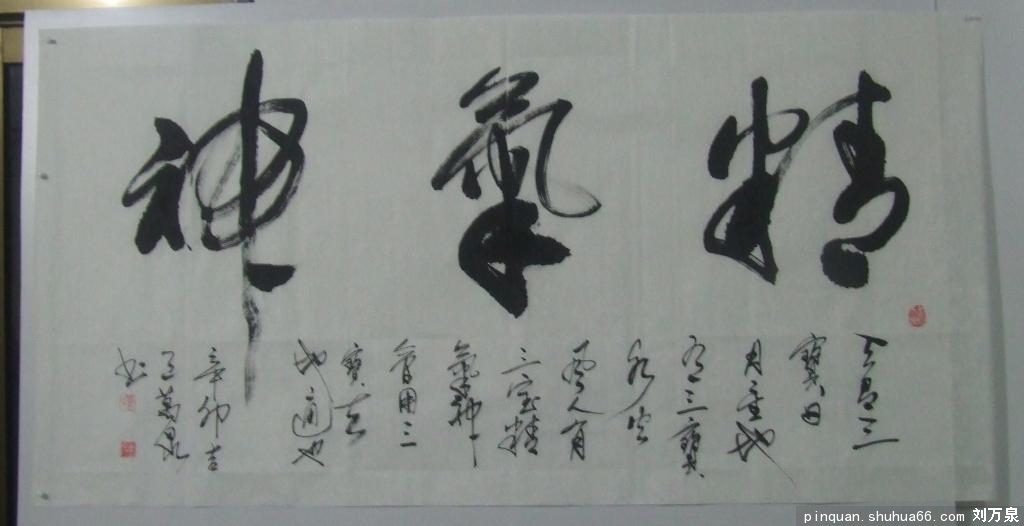 精氣神
天有三
寶日
月星地
有三寶
水火
風人有
三宝精
氣神
會用三
寶天
地通也
辛卯吉
日萬泉
书
pinquan.shuhua66.com 刘万泉